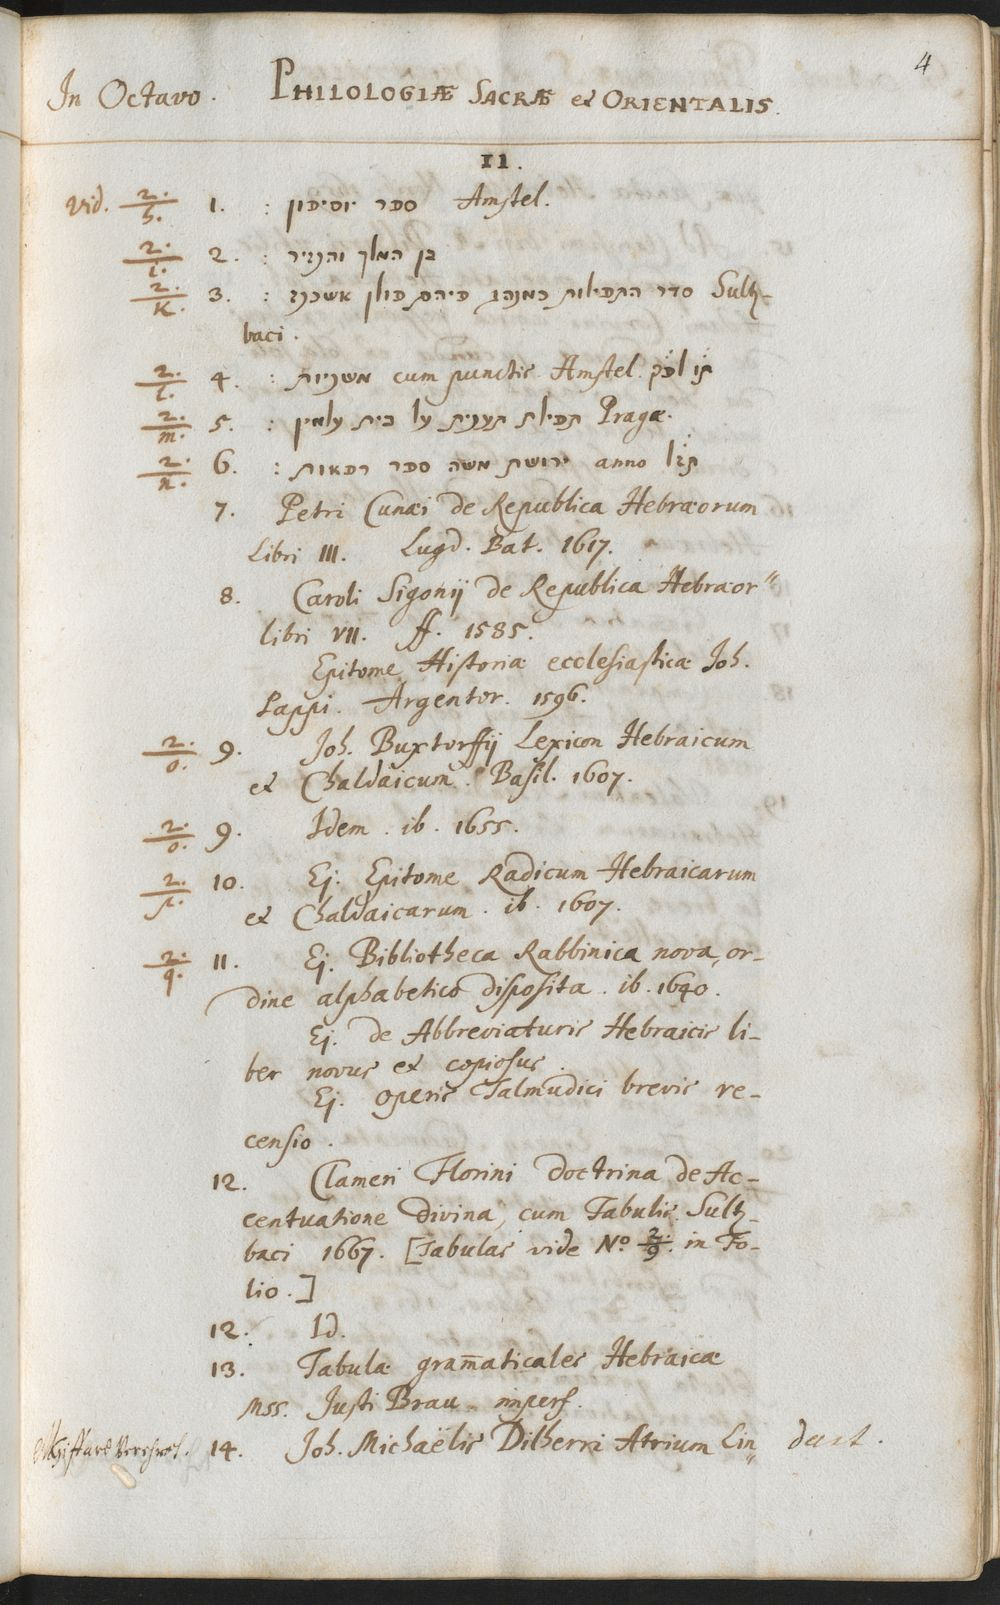 4
In Octavo. PHILOLOGIÆ SACRÆ et ORIENTALIS.
11.
Vid. 2./h. 1. : ספר יוסיפון Amstel.
2./i. 2. : בן המלך והנזיר
2./k. 3. : סדר התפילות כמנהג פיהם פולן אשכנז Sultz-
baci.
2./l. 4. : משניות cum punctis Amstel. תו לפק
2./m. 5. : תפילת תענית על בית עלמין Pragæ.
2./n. 6. : ירושת משה ספר רפאות anno
7. Petri Cunæi de Republica Hebræorum
Libri III. Lugd. Bat. 1617.
8. Caroli Sigonij de Republica Hebræor"
libri VII. ff. 1585.
Epitome Historiæ ecclesiasticæ Joh.
Pappi. Argentor. 1596.
2./o. 9. Joh. Buxtorffij Lexicon Hebraicum
et Chaldaicum. Basil. 1607.
2./o. 9. Idem. ib. 1655.
2./p. 10. Ej. Epitome Radicum Hebraicarum
et Chaldaicarum. ib. 1607.
2./q. 11. Ej. Bibliotheca Rabbinica nova, or-
dine alphabetico disposita. ib. 1640.
Ej. de Abbreviaturis Hebraicis li-
ber novus et copiosus.
Ej. operis Talmudici brevis re-
censio.
12. Clameri Florini doctrina de Ac-
centuatione divina, cum Tabulis. Sultz-
baci 1667. [Tabulas vide No. 2./9. in Fo-
lio.]
12. Id.
13. Tabulæ gram̄aticales Hebraicæ
Mss. Justi Brau. imperf.
14. Joh. Michaëlis Dilherri Atrium Lin„ deest.